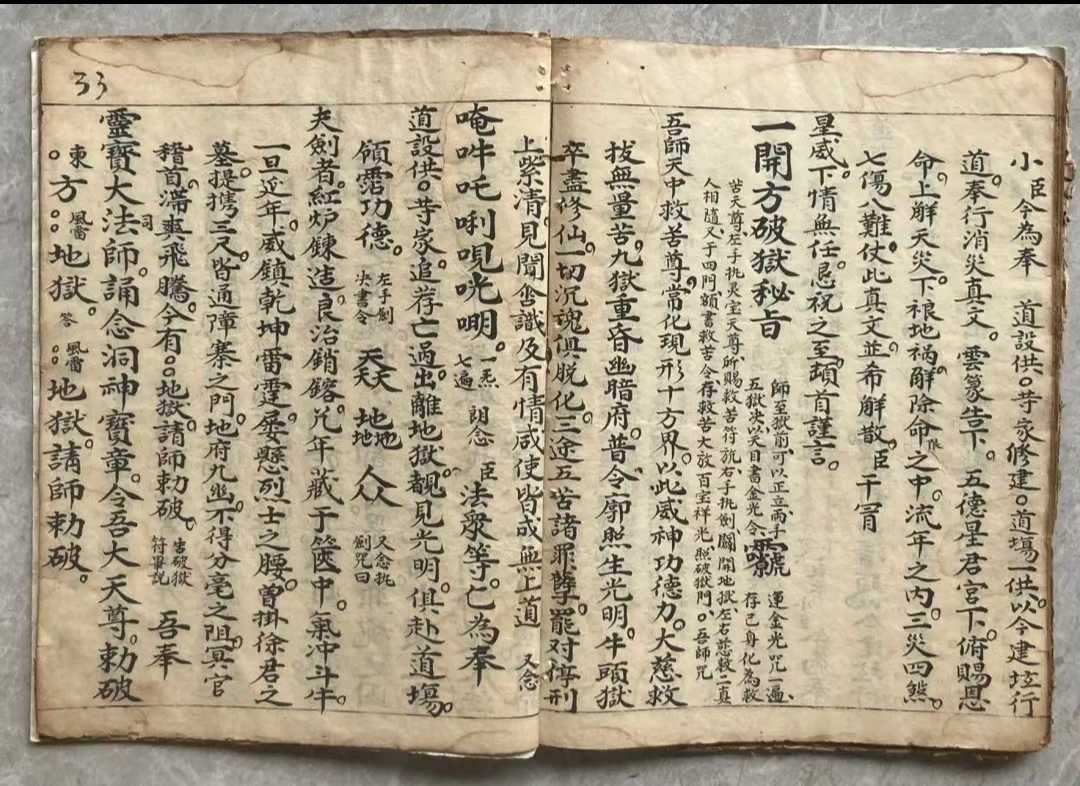 小臣今為奉　道設供。䒭家修建。道塲一供。以今建坛行
道。奉行消災真文。雲篆告下。五德星君宮下。俯賜恩
命。上解天災。下禳地禍。解除命限之中。流年之内。三災四煞。
七傷八難。仗此真文。並希解散。臣干冐
星威。下情無任忌祝之至。頓首謹言。
一開方破獄秘旨
師至獄前可以正立。兩手
五獄夬。以天目書金光令
運金光咒一遍。
存己身化為救
苦天尊。左手执灵宝天尊所賜救苦符旒。右手执劍。闢開地獄。左右慈救二真
人相随。又于四門額書救苦令。存救苦大放百宝祥光。照破獄門。吾師咒
吾師天中救苦尊。常化現形十方界。以此威神功德力。大慈救
拔無量苦。九獄重昏幽暗府。普令廓照生光明。牛頭獄
卒盡修仙。一切沉魂俱脱化。三途五苦諸罪孽。罷对停刑
上紫清。見聞㘴識及有情。咸使皆成無上道 又念
唵吽吒唎唄咣嘲。一炁七遍 朗念 臣法衆等。亡為奉
道設供。䒭家。追荐亡過。出離地獄。覩見光明。俱赴道塲。
領霑功德。 左手劍夬書令 天天天 地地地 人人人 又念执劍咒曰
夫劍者。紅炉鍊造。良治銷鎔。允年藏于篋中。氣冲斗牛。
一旦近年。威鎮乾坤。雷霆屡懸。烈士之腰。曽掛徐君之
墓。提攜三尺。皆通障寨之門。地府九幽。不得分毫之阻。冥官
稽首。滞爽飛騰。今有。司。地獄。請師勅破。 宣破獄符畢説 吾奉
靈寶大法師。誦念洞神寶章。令吾大天尊。勅破
東方。風雷地獄。答 風雷地獄。請師勅破。
33